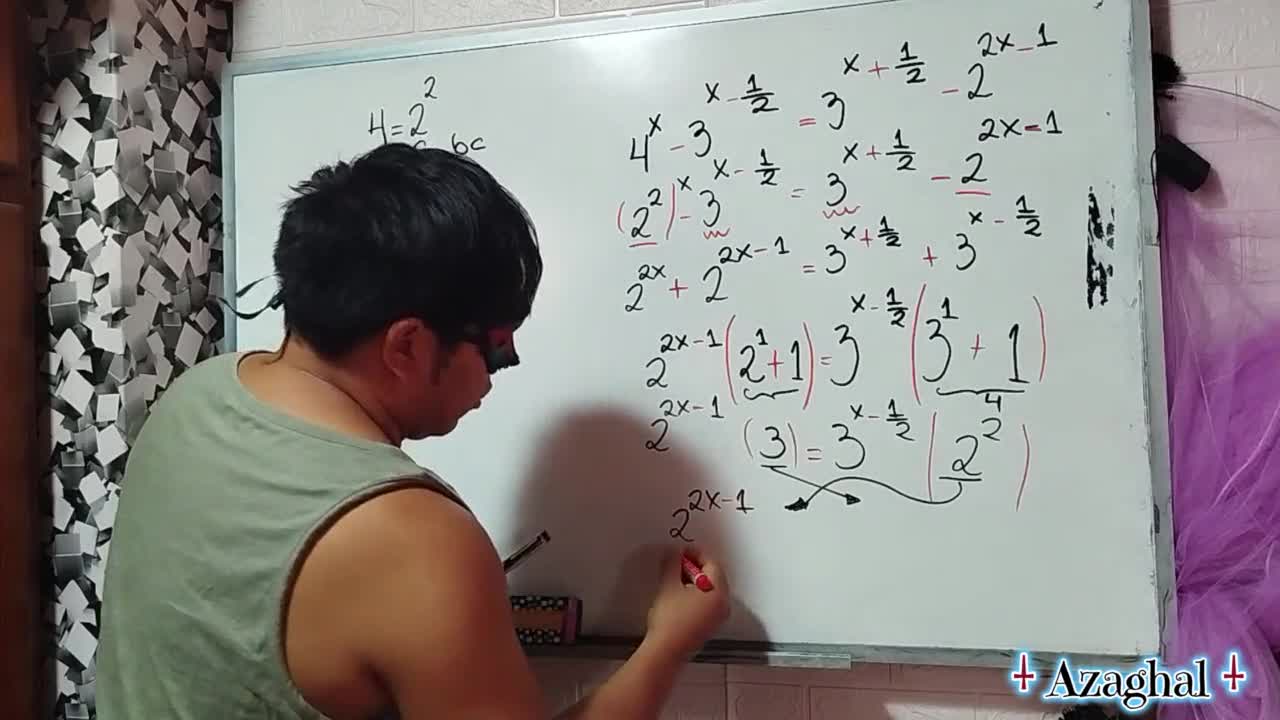 4 = 2²
bc
4^x - 3^(x - 1/2) = 3^(x + 1/2) - 2^(2x - 1)
(2²)^x - 3^(x - 1/2) = 3^(x + 1/2) - 2^(2x - 1)
2^(2x) + 2^(2x - 1) = 3^(x + 1/2) + 3^(x - 1/2)
2^(2x - 1) (2¹ + 1) = 3^(x - 1/2) (3¹ + 1)
4
2^(2x - 1) (3) = 3^(x - 1/2) (2²)
2^(2x - 1)
Azaghal